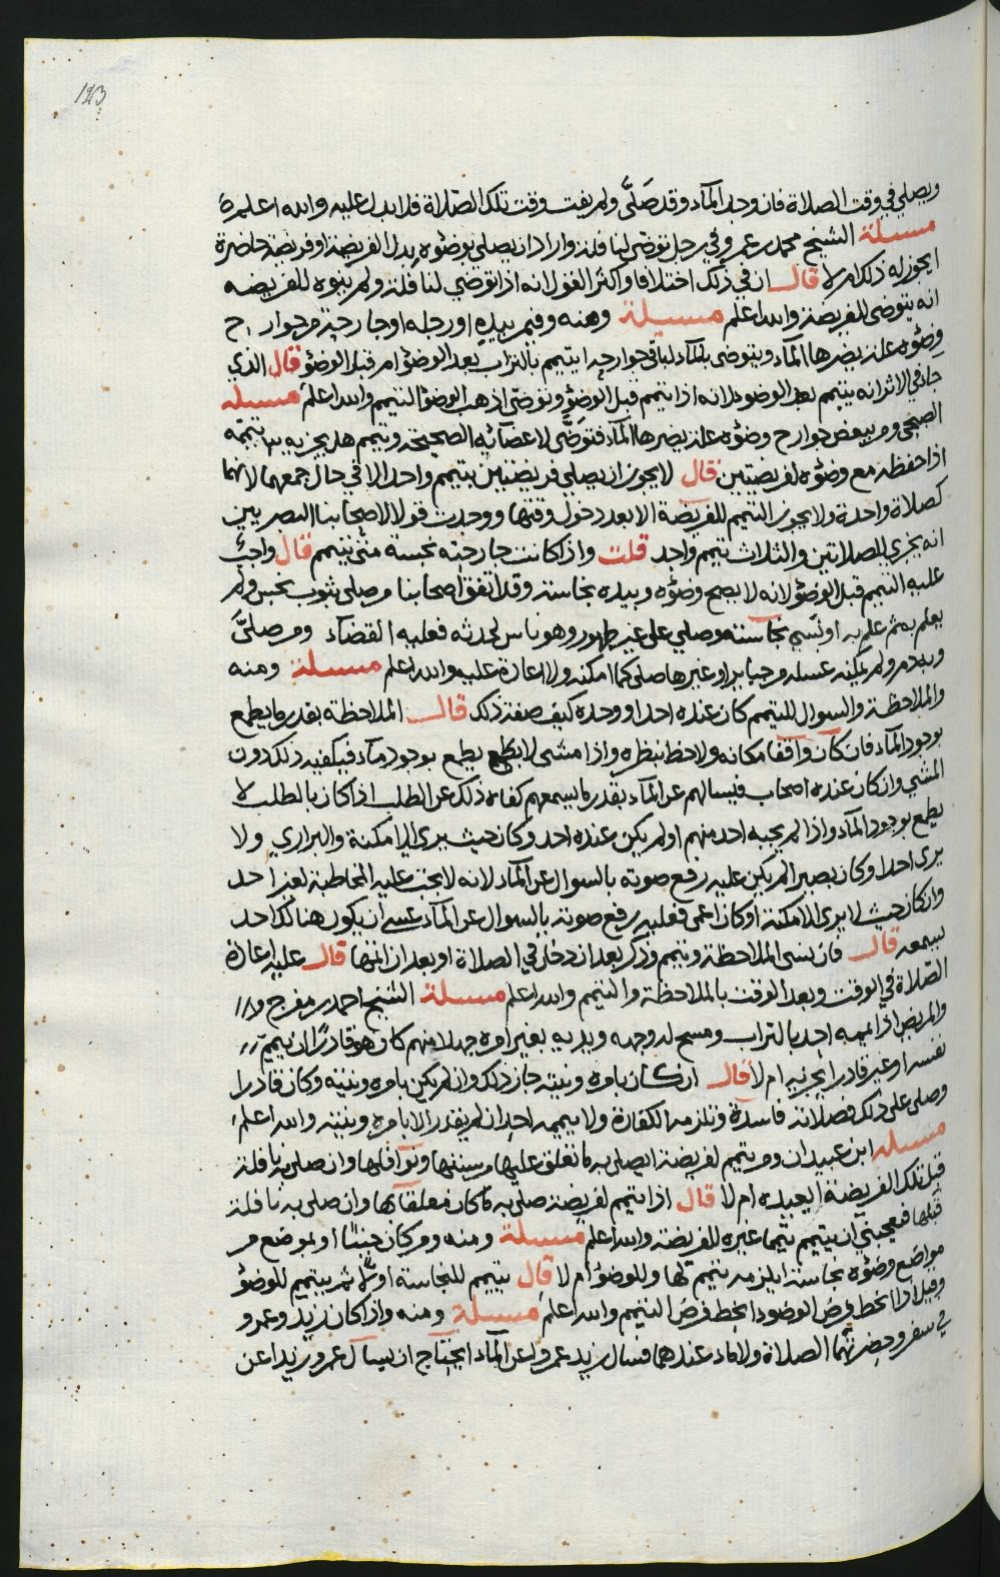 123
ويصلي في وقت الصلاة فان وجد الماء وقد صَلَّى ولم يفت وقت تلك الصلاة فلا بدل عليه والله اعلم
مسئلة الشيخ محمد بن عمر وفي رجل توضى لنافلة واراد ان يصلي بوضوه بدل الفريضة او فريضة حاضرة
ايجوز له ذلك ام لا قال ان في ذلك اختلافا واكثر القول انه اذا توضي لنافلة ولم ينوه للفريضه
انه يتوضى للفريضة والله اعلم مسئلة ومنه وفيمن بيده او رجله او جارحة من جوارح
وضوه علة يضرها الماء ويتوضى بالماء لباقي جوارحه ايتيمم بالتراب بعد الوضوء ام قبل الوضوء قال الذي
جاء في الاثر انه يتيمم بعد الوضوء لانه اذا تيمم قبل الوضوء وتوضى اذهب الوضوء التيمم والله اعلم مسئله
الصبحي ومن ببعض جوارح وضوه علة يضرها الماء فتوضَّى لاعضائه الصحيحة وتيمم هل يجزيه تيممه
اذا حفظه مع وضوه لفريضتين قال لا يجوز ان يصلي فريضتين بتيمم واحد الا في حال جمعهما لانهما
كصلاة واحدة ولا يجوز التيمم للفريضة الا بعد دخول وقتها ووجدت قولا لاصحابنا البصريين
انه يجزي للصلاتين والثلاث تيمم واحد قلت واذا كانت جارحته نجسة متى يتيمم قال واجب
عليه التيمم قبل الوضوء لانه لا يصح وضوه وبيده نجاسة وقد اتفق اصحابنا من صلى بثوب نجس ولم
يعلم به ثم علم به او نسي نجاسته وصلى على غير طهور وهو ناس لحدثه فعليه القضاء ومن صلىَّ
وبه دم ولم يمكنه غسله من جبا يرا وغيرها صلى كما امكنه ولا اعادة عليه والله اعلم مسئلة ومنه
والملاحظة والسوال للتيمم كان عنده احد او وحده كيف صفة ذلك قال الملاحظة بقدر ما يطمع
بوجود الماء فان كان واقفا مكانه ولاحظ بنظره واذا مشى لا يطمع يطمع بوجود ماء فيكفيه ذلك دون
المشي وان كان عنده اصحاب فيسالهم عن الماء بقدر ما يسمعهم كفاه ذلك عن الطلب اذا كان بالطلب لا
يطمع بوجود الماء واذا لم يجبه احد منهم او لم يكن عنده احد وكان حيث يرى الامكنة والبراري ولا
يرى احدا وكان بصيرا لم يكن عليه رفع صوته بالسوال عن الماء لانه لا يجب عليه المخاطبة لغير احد
وان كان حيث لا يرى الامكنة او كان اعمى فعليه رفع صوته بالسوال عن الماء عسى ان يكون هنالك احد
يسمعه قال فان نسى الملاحظة وتيمم وذكر بعد ان دخل في الصلاة او بعد ان اتمها قال عليه اعادة
الصلاة في الوقت وبعد الوقت بالملاحظة والتيمم والله اعلم مسئلة الشيخ احمد بن مفرج
والمريض اذا ايممه احد بالتراب ومسح له وجهه ويديه بغير امره جهلا منهم كان هو قادرًا ان ييمم
نفسه او غير قادر ايجزيه ام لا قال ان كان بامره ونيته جاز ذلك وان لم يكن بامره ونيته وكان قادرا
وصلى على ذلك فصلاته فاسدة وتلزمه الكفارة ولا ييممه احد ان لم يقدر الا بامره ونيته والله اعلم
مسئله ابن عبيدان ومن تيمم لفريضة ايصلي به ما تعلق عليها من سننها ونوافلها وان صلى به نافلة
قبل تلك الفريضة ايعيده ام لا قال اذا تيمم لفريضة صلى به ما كان معلقا بها وان صلى به نافلة
قبلها فيعجبني ان يتيمم تيمما غيره للفريضة والله اعلم مسئلة ومنه ومن كان جنبًا او بموضع من
مواضع وضوه نجاسة ايلزمه تيمم لها وللوضوء ام لا قال يتيمم للنجاسة اولا ثم يتيمم للوضوء
وقيل اذا انحط فرض الوضوء انحط فرض التيمم والله اعلم مسئلة ومنه واذا كان زيد وعمرو
في سفر وحضرتهما الصلاة ولا ماء عندهما فسال زيد عمروا عن الماء ايحتاج ان يسال عمرو زيدا عن